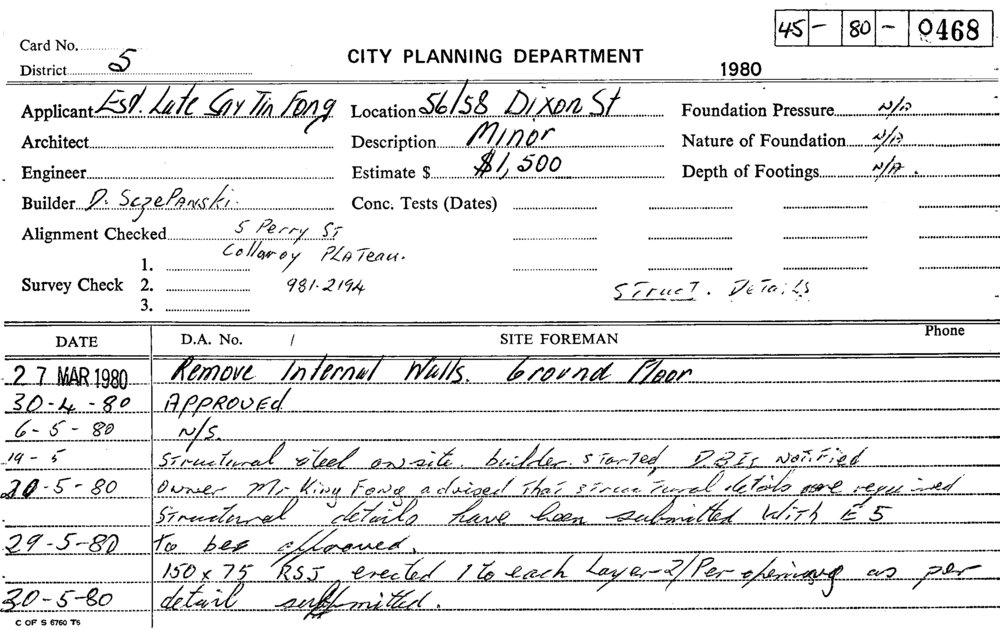 45 - 80 - 0468
Card No.
District 5
CITY PLANNING DEPARTMENT
1980
Applicant Est. Late Say Tin Fong Location 56/58 Dixon St Foundation Pressure N/A
Architect Description Minor Nature of Foundation N/A
Engineer Estimate $ $1,500 Depth of Footings N/A.
Builder D. SczePanski. Conc. Tests (Dates)
Alignment Checked 5 Perry St
Collaroy PLATeau.
1.
Survey Check 2. 981-2194 STruct. DeTails
3.
DATE D.A. No. / SITE FOREMAN Phone
27 MAR 1980 Remove Internal Walls. Ground Floor
30-4-80 APPROVED
6-5-80 N/S.
19-5 Structural steel on site. builder. sTarted, D.B.Is NoTified
20-5-80 Owner Mr King Fong advised That strucTural details are required
Structural details have been submitted With E 5
29-5-80 to bee approved.
150 x 75 RSJ erected 1 to each Layer-2/Per opening as per
30-5-80 detail submitted.
C OF S 6760 T5